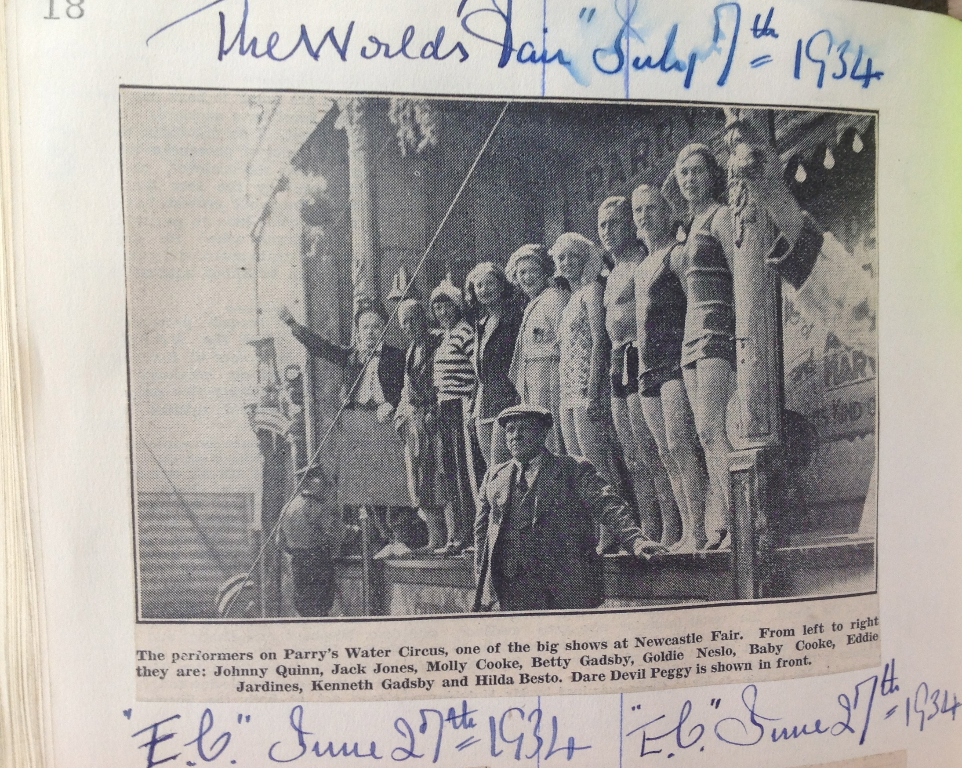 18
The World's Fair" July 7th = 1934
PARRY
The performers on Parry's Water Circus, one of the big shows at Newcastle Fair. From left to right
they are: Johnny Quinn, Jack Jones, Molly Cooke, Betty Gadsby, Goldie Neslo, Baby Cooke, Eddie
Jardines, Kenneth Gadsby and Hilda Besto. Dare Devil Peggy is shown in front.
"E.C." June 27th = 1934
"E.C." June 27th = 1934